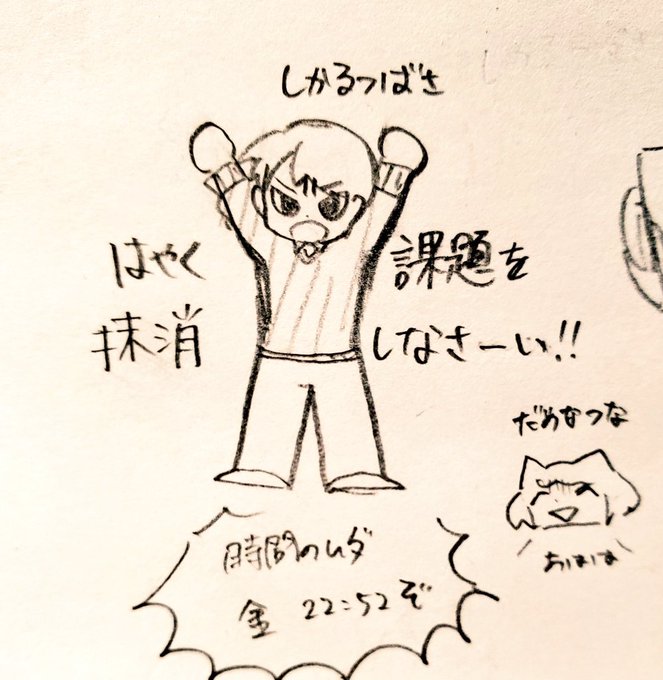 しかるつばさ
はやく
課題を
抹消
しなさーい!!
だめなつな
あはは
時間のムダ
金 22:52ぞ